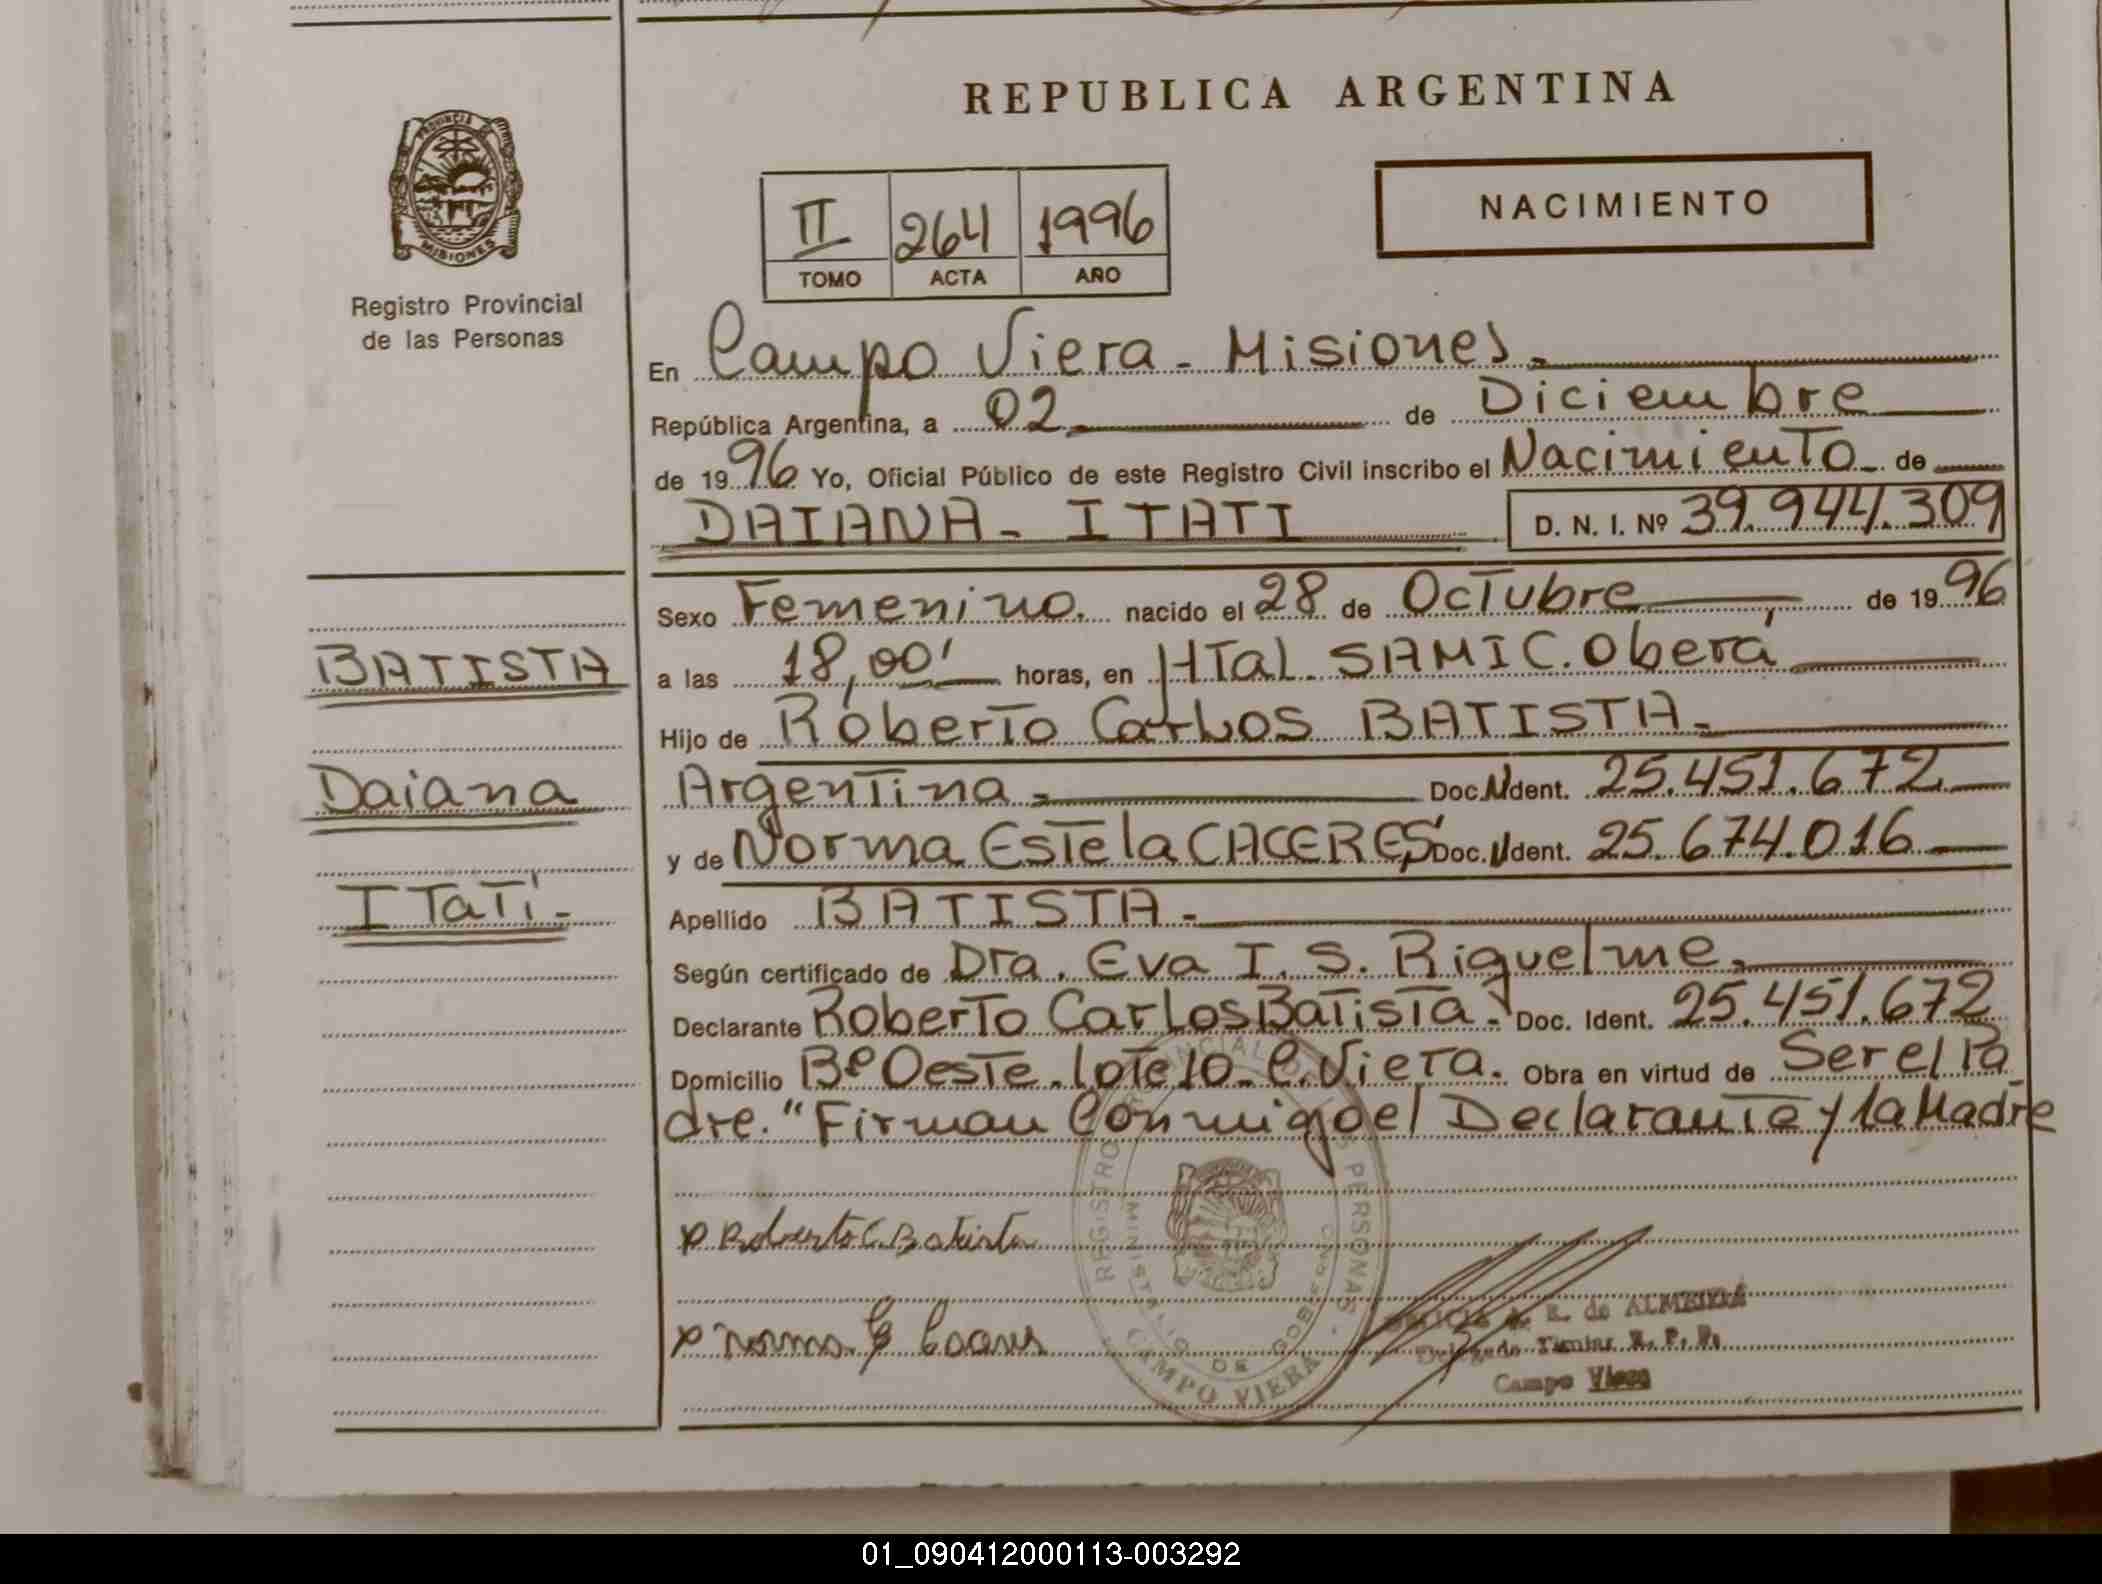 REPUBLICA ARGENTINA
PROVINCIA DE
MISIONES
Registro Provincial
de las Personas
NACIMIENTO
II 264 1996
TOMO ACTA AÑO
En Campo Viera - Misiones.
República Argentina, a 02 de Diciembre
de 1996 Yo, Oficial Público de este Registro Civil inscribo el Nacimiento de
DAIANA - ITATI D. N. I. Nº 39.944.309
Sexo Femenino. nacido el 28 de Octubre de 1996
BATISTA
a las 18,00' horas, en HTal. SAMIC. Oberá
Hijo de Roberto Carlos BATISTA.
Daiana
Argentina Doc. N Ident. 25.451.672
y de Norma Estela CACERES Doc. N Ident. 25.674.016
Itatí.
Apellido BATISTA.
Según certificado de Dra. Eva I. S. Riquelme.
Declarante Roberto Carlos Batista. Doc. Ident. 25.451.672
Domicilio Bº Oeste. Lote 10. C. Viera. Obra en virtud de Ser el Pa
dre. "Firman Conmigo el Declarante y la Madre
Roberto C. Batista
Norma E
REGISTRO PROVINCIAL DE LAS PERSONAS
MINISTERIO DE GOBIERNO
CAMPO VIERA
R. de ALMEIDA
Delegado Titular R. P. P.
Campo Viera
01_090412000113-003292